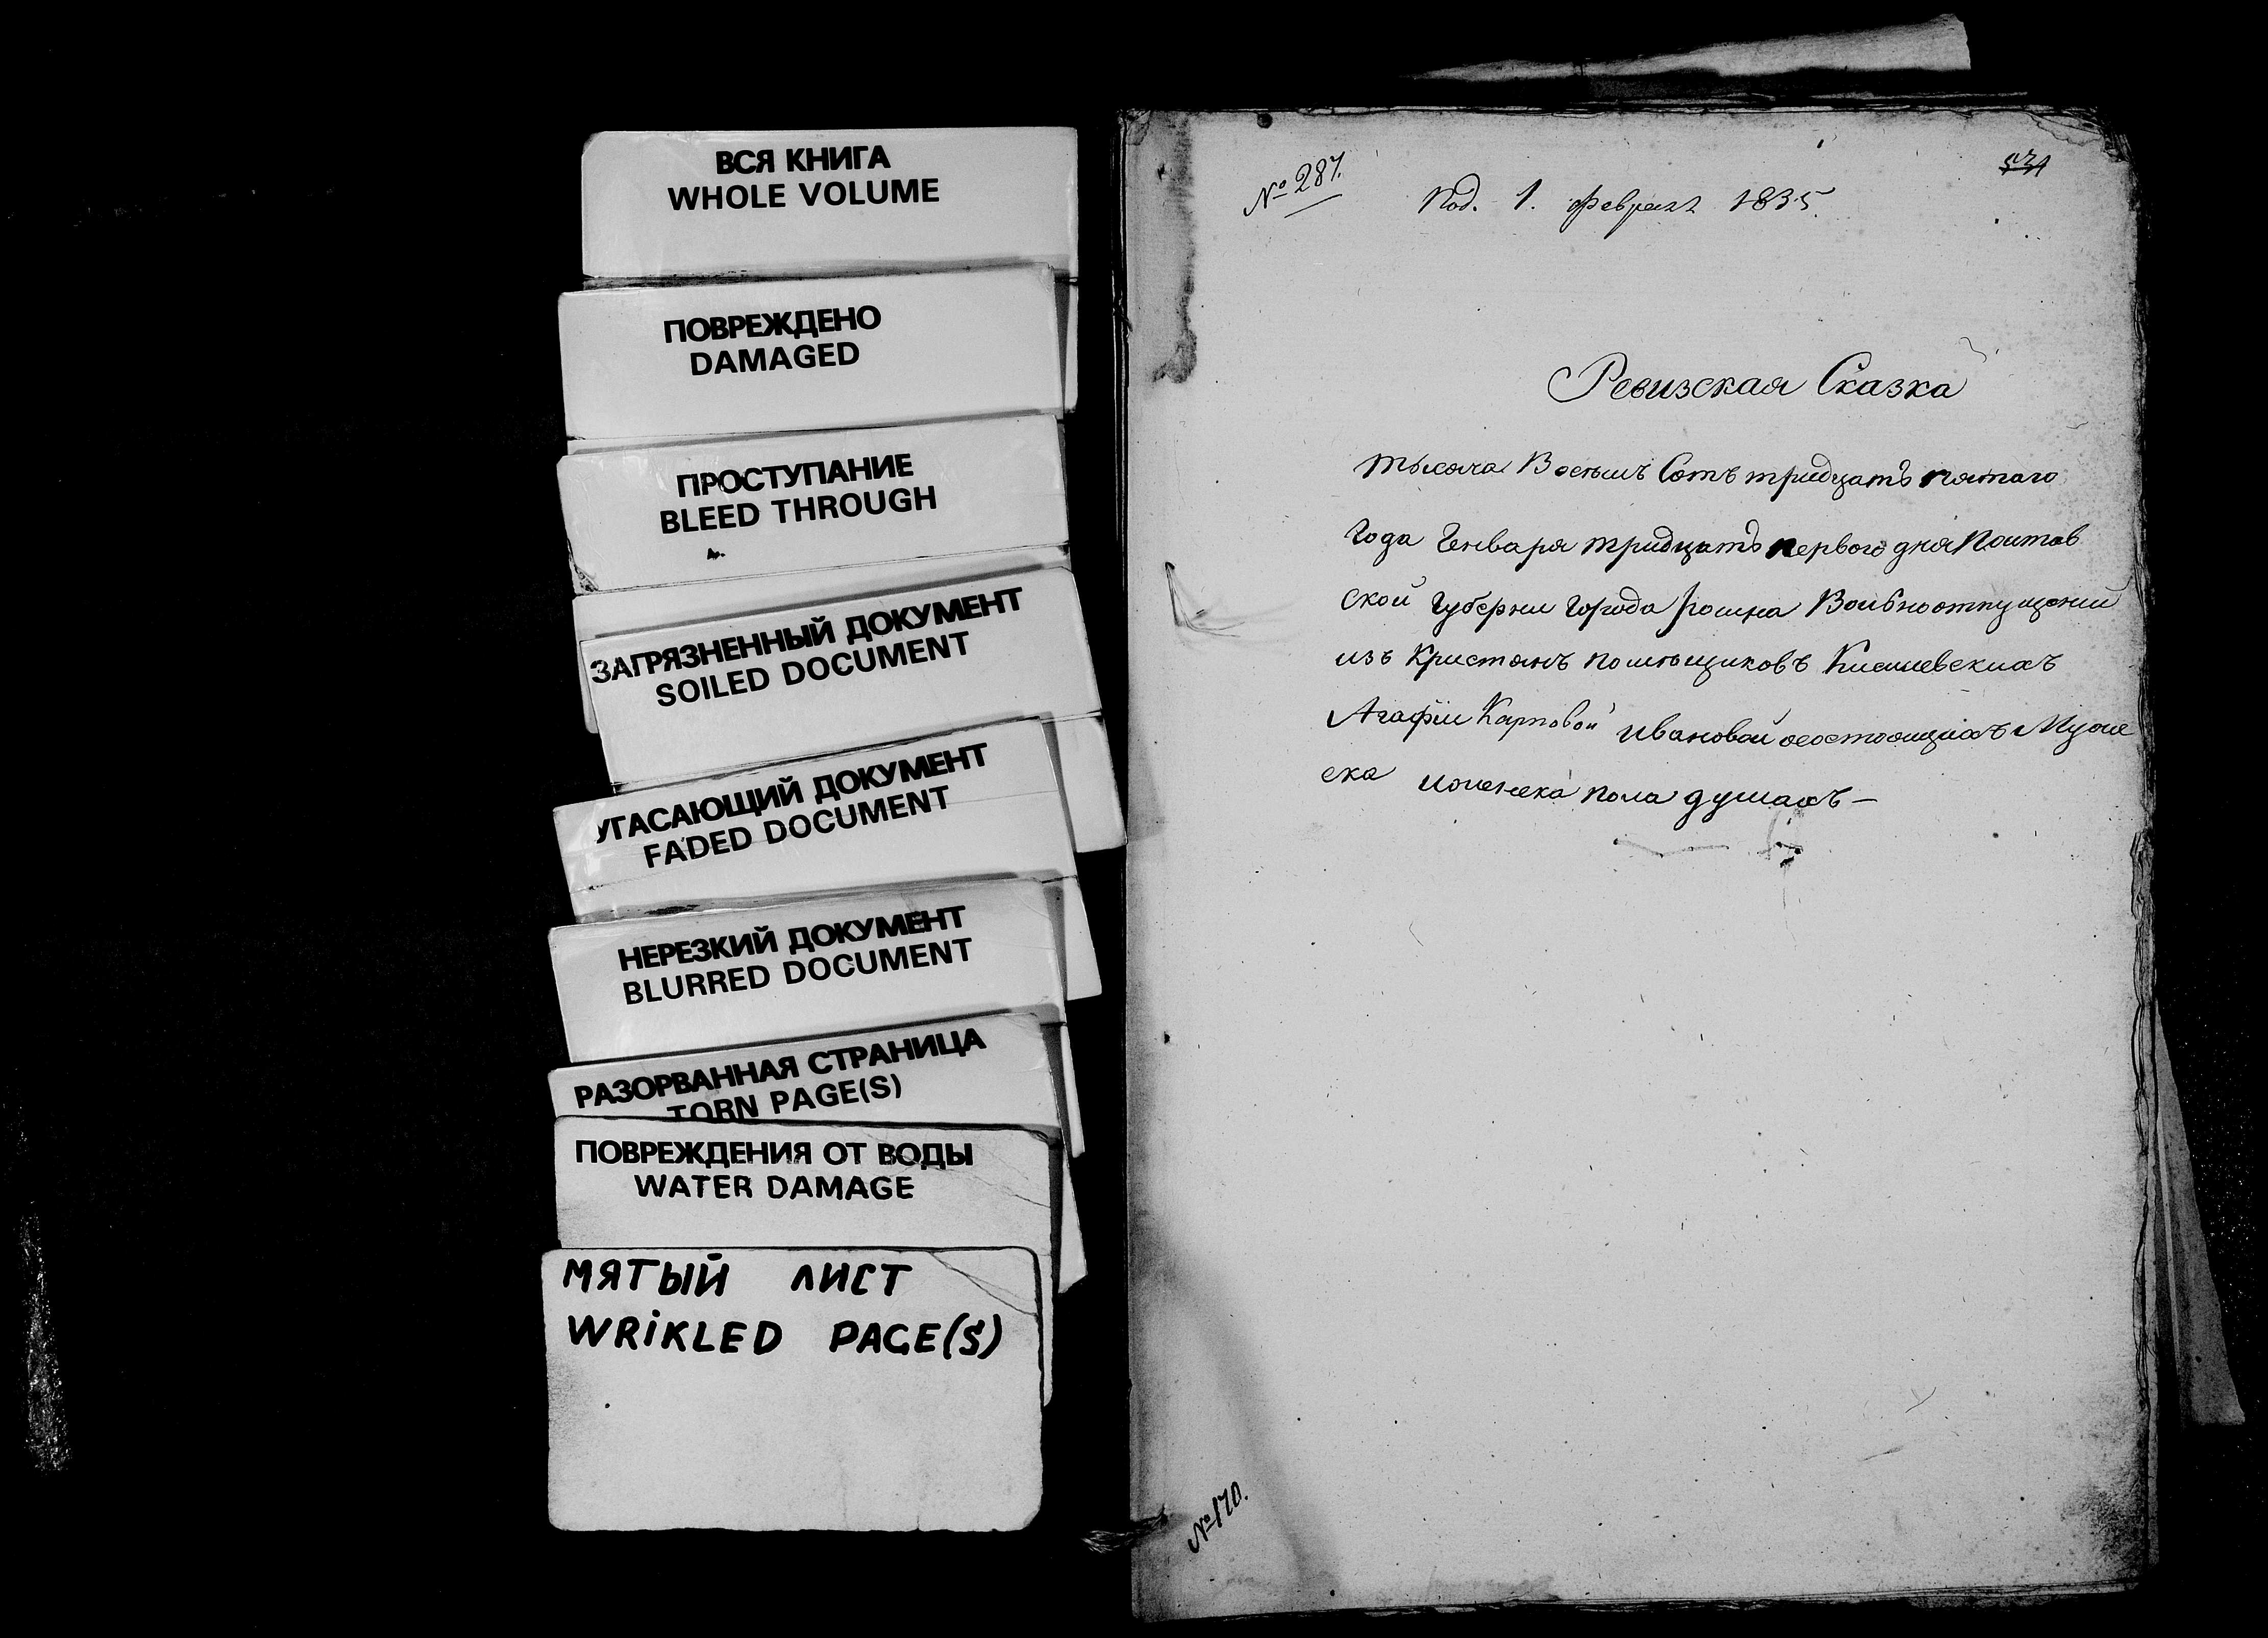 ВСЯ КНИГА
WHOLE VOLUME
ПОВРЕЖДЕНО
DAMAGED
ПРОСТУПАНИЕ
BLEED THROUGH
ЗАГРЯЗНЕННЫЙ ДОКУМЕНТ
SOILED DOCUMENT
УГАСАЮЩИЙ ДОКУМЕНТ
FADED DOCUMENT
НЕРЕЗКИЙ ДОКУМЕНТ
BLURRED DOCUMENT
РАЗОРВАННАЯ СТРАНИЦА
TORN PAGE(S)
ПОВРЕЖДЕНИЯ ОТ ВОДЫ
WATER DAMAGE
МЯТЫЙ ЛИСТ
WRIKLED PAGE(S)
№ 287.
Под. 1. февраля 1835.
Ревизская Сказка
тысяча Восемъ Сотъ тридцать пятаго
Года Генваря тридцать первого дня Полтав
ской Губерни города Ромна Волбноотпущеной
изъ Кристянъ помещиковъ
Агафіи Карповой Ивановой осостоящихъ Муже
ска иженска пола душахъ —
№ 170.